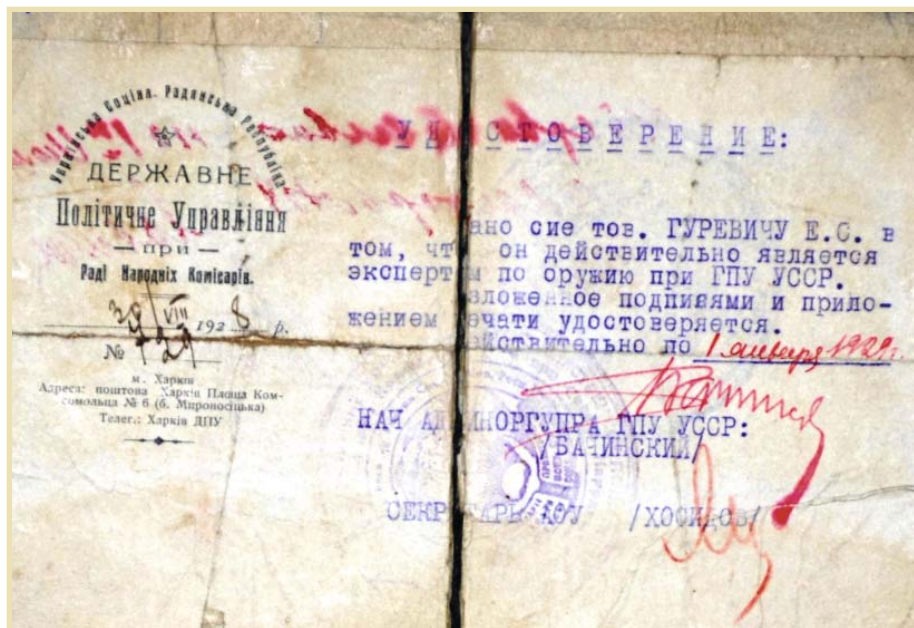 Українська Соціял. Радянська Республіка
ДЕРЖАВНЕ
Політичне Управління
— при —
Раді Народніх Комісарів.
VIII 1928 р.
№
м. Харків
Адреса: поштова Харків Площа Ком-
сомольца № 6 (б. Мироносіцька)
Телег.: Харків ДПУ
УДОСТОВЕРЕНИЕ:
ано сие тов. ГУРЕВИЧУ Е.С. в
том, чт он действительно является
эксперт м по оружию при ГПУ УССР.
зложенное подписями и прило-
жением ечати удостоверяется.
ействительно по 1 января 1929г.
НАЧ АДМИНОРГУПРА ГПУ УССР:
/БАЧИНСКИЙ/
СЕКРЕТАРЬ АОУ /ХОСИДОВ/